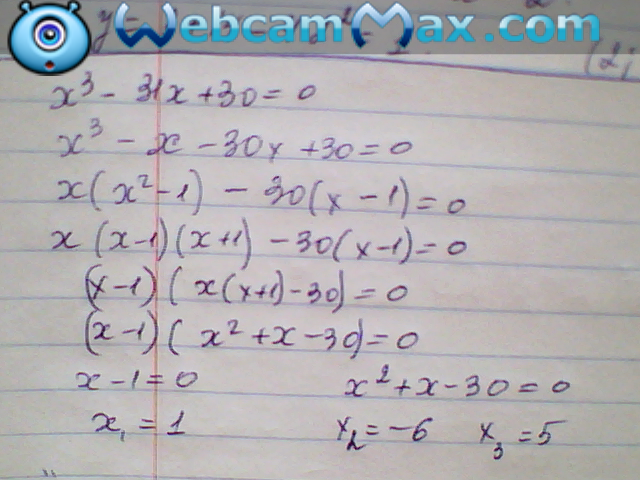 WebcamMax.com
x³ - 31x + 30 = 0
x³ - x - 30x + 30 = 0
x(x² - 1) - 30(x - 1) = 0
x(x-1)(x+1) - 30(x-1) = 0
(x-1)(x(x+1)-30) = 0
(x-1)(x² + x - 30) = 0
x - 1 = 0 x² + x - 30 = 0
x₁ = 1 x₂ = -6 x₃ = 5